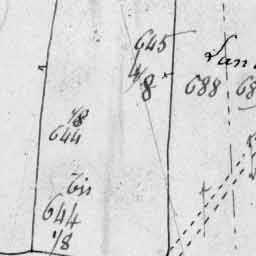 645
4/8
688
1/8
644
bis
644
1/8